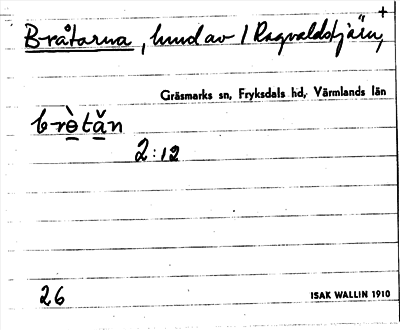 +
Bråtarna, hmd av 1 Ragvaldstjärn,
Gräsmarks sn, Fryksdals hd, Värmlands län
brə̀tǎn
2:12
26
ISAK WALLIN 1910